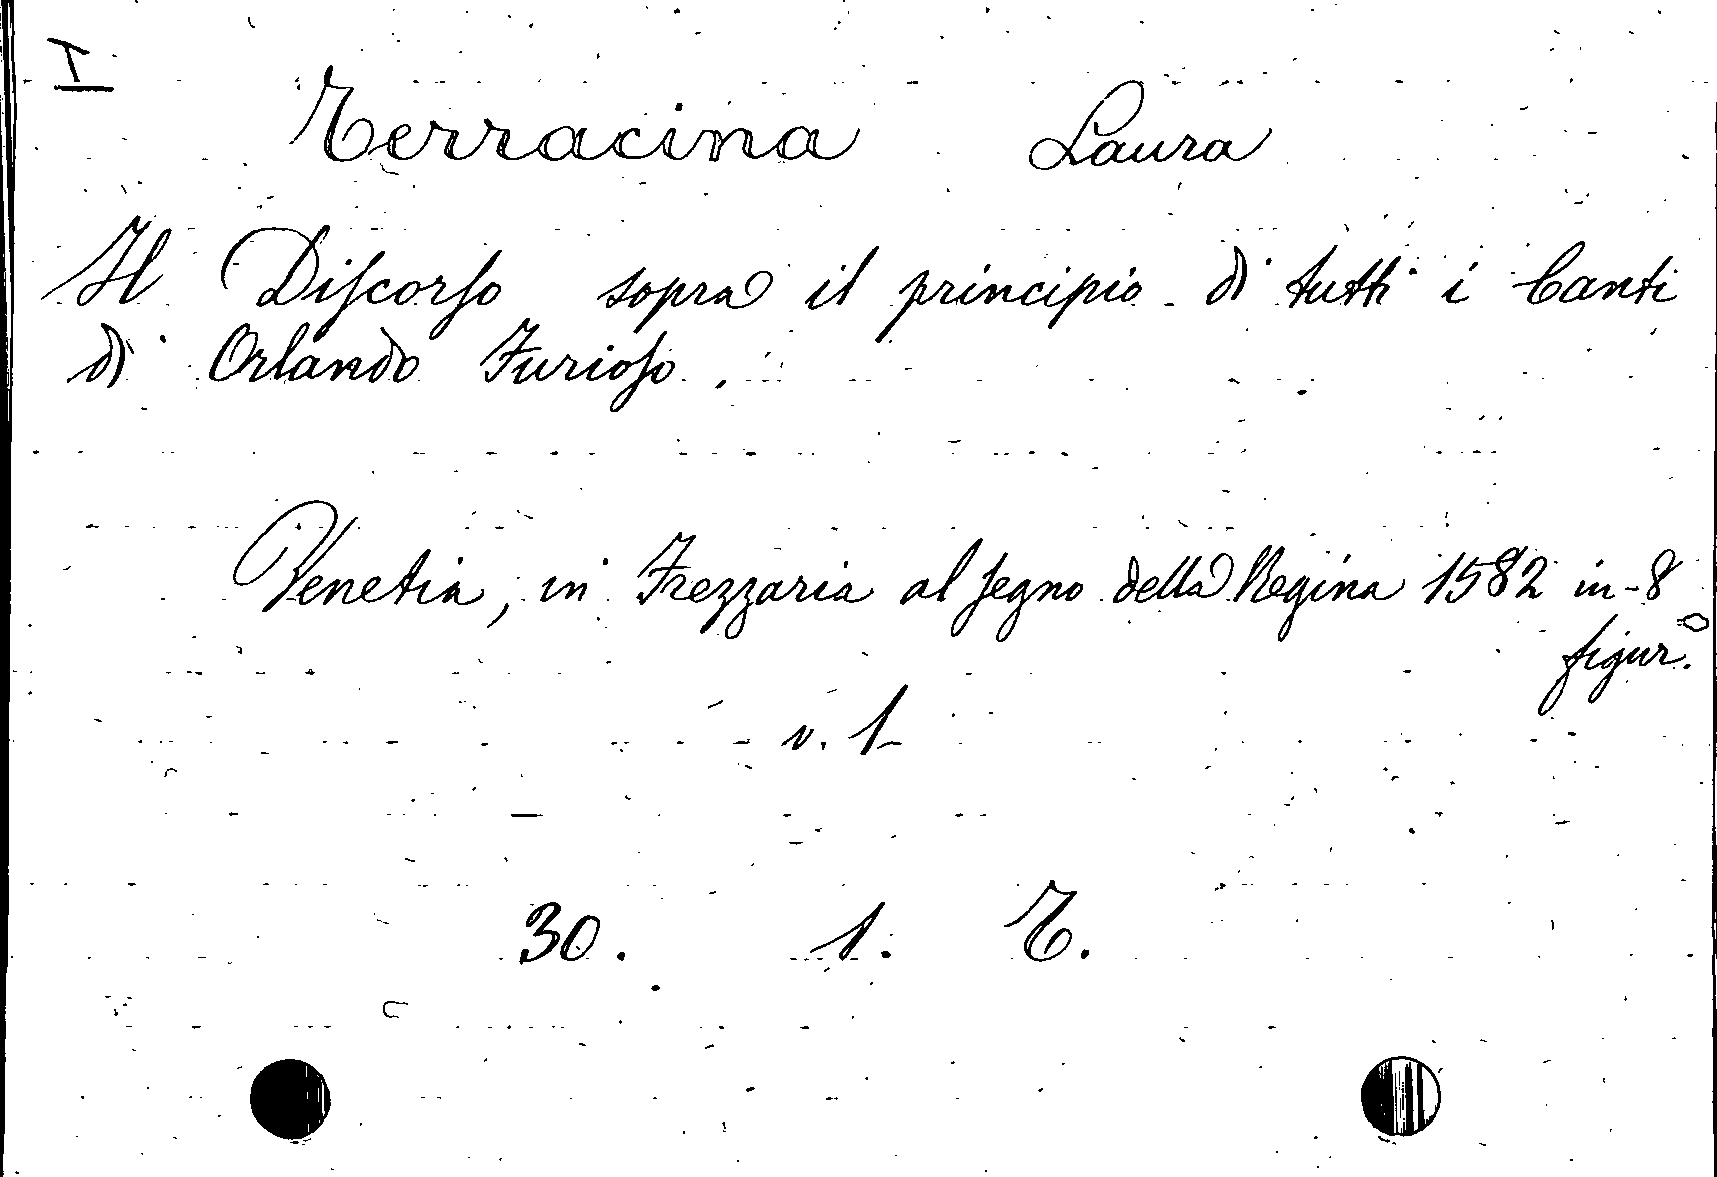 I
Terracina Laura
Il Diſcorſo sopra il principio di tutti i Canti
di Orlando Furioſo.
Venetia, in Frezzaria al ſegno della Regina 1582 in-8º
figur.
v. 1
30. 1. T.